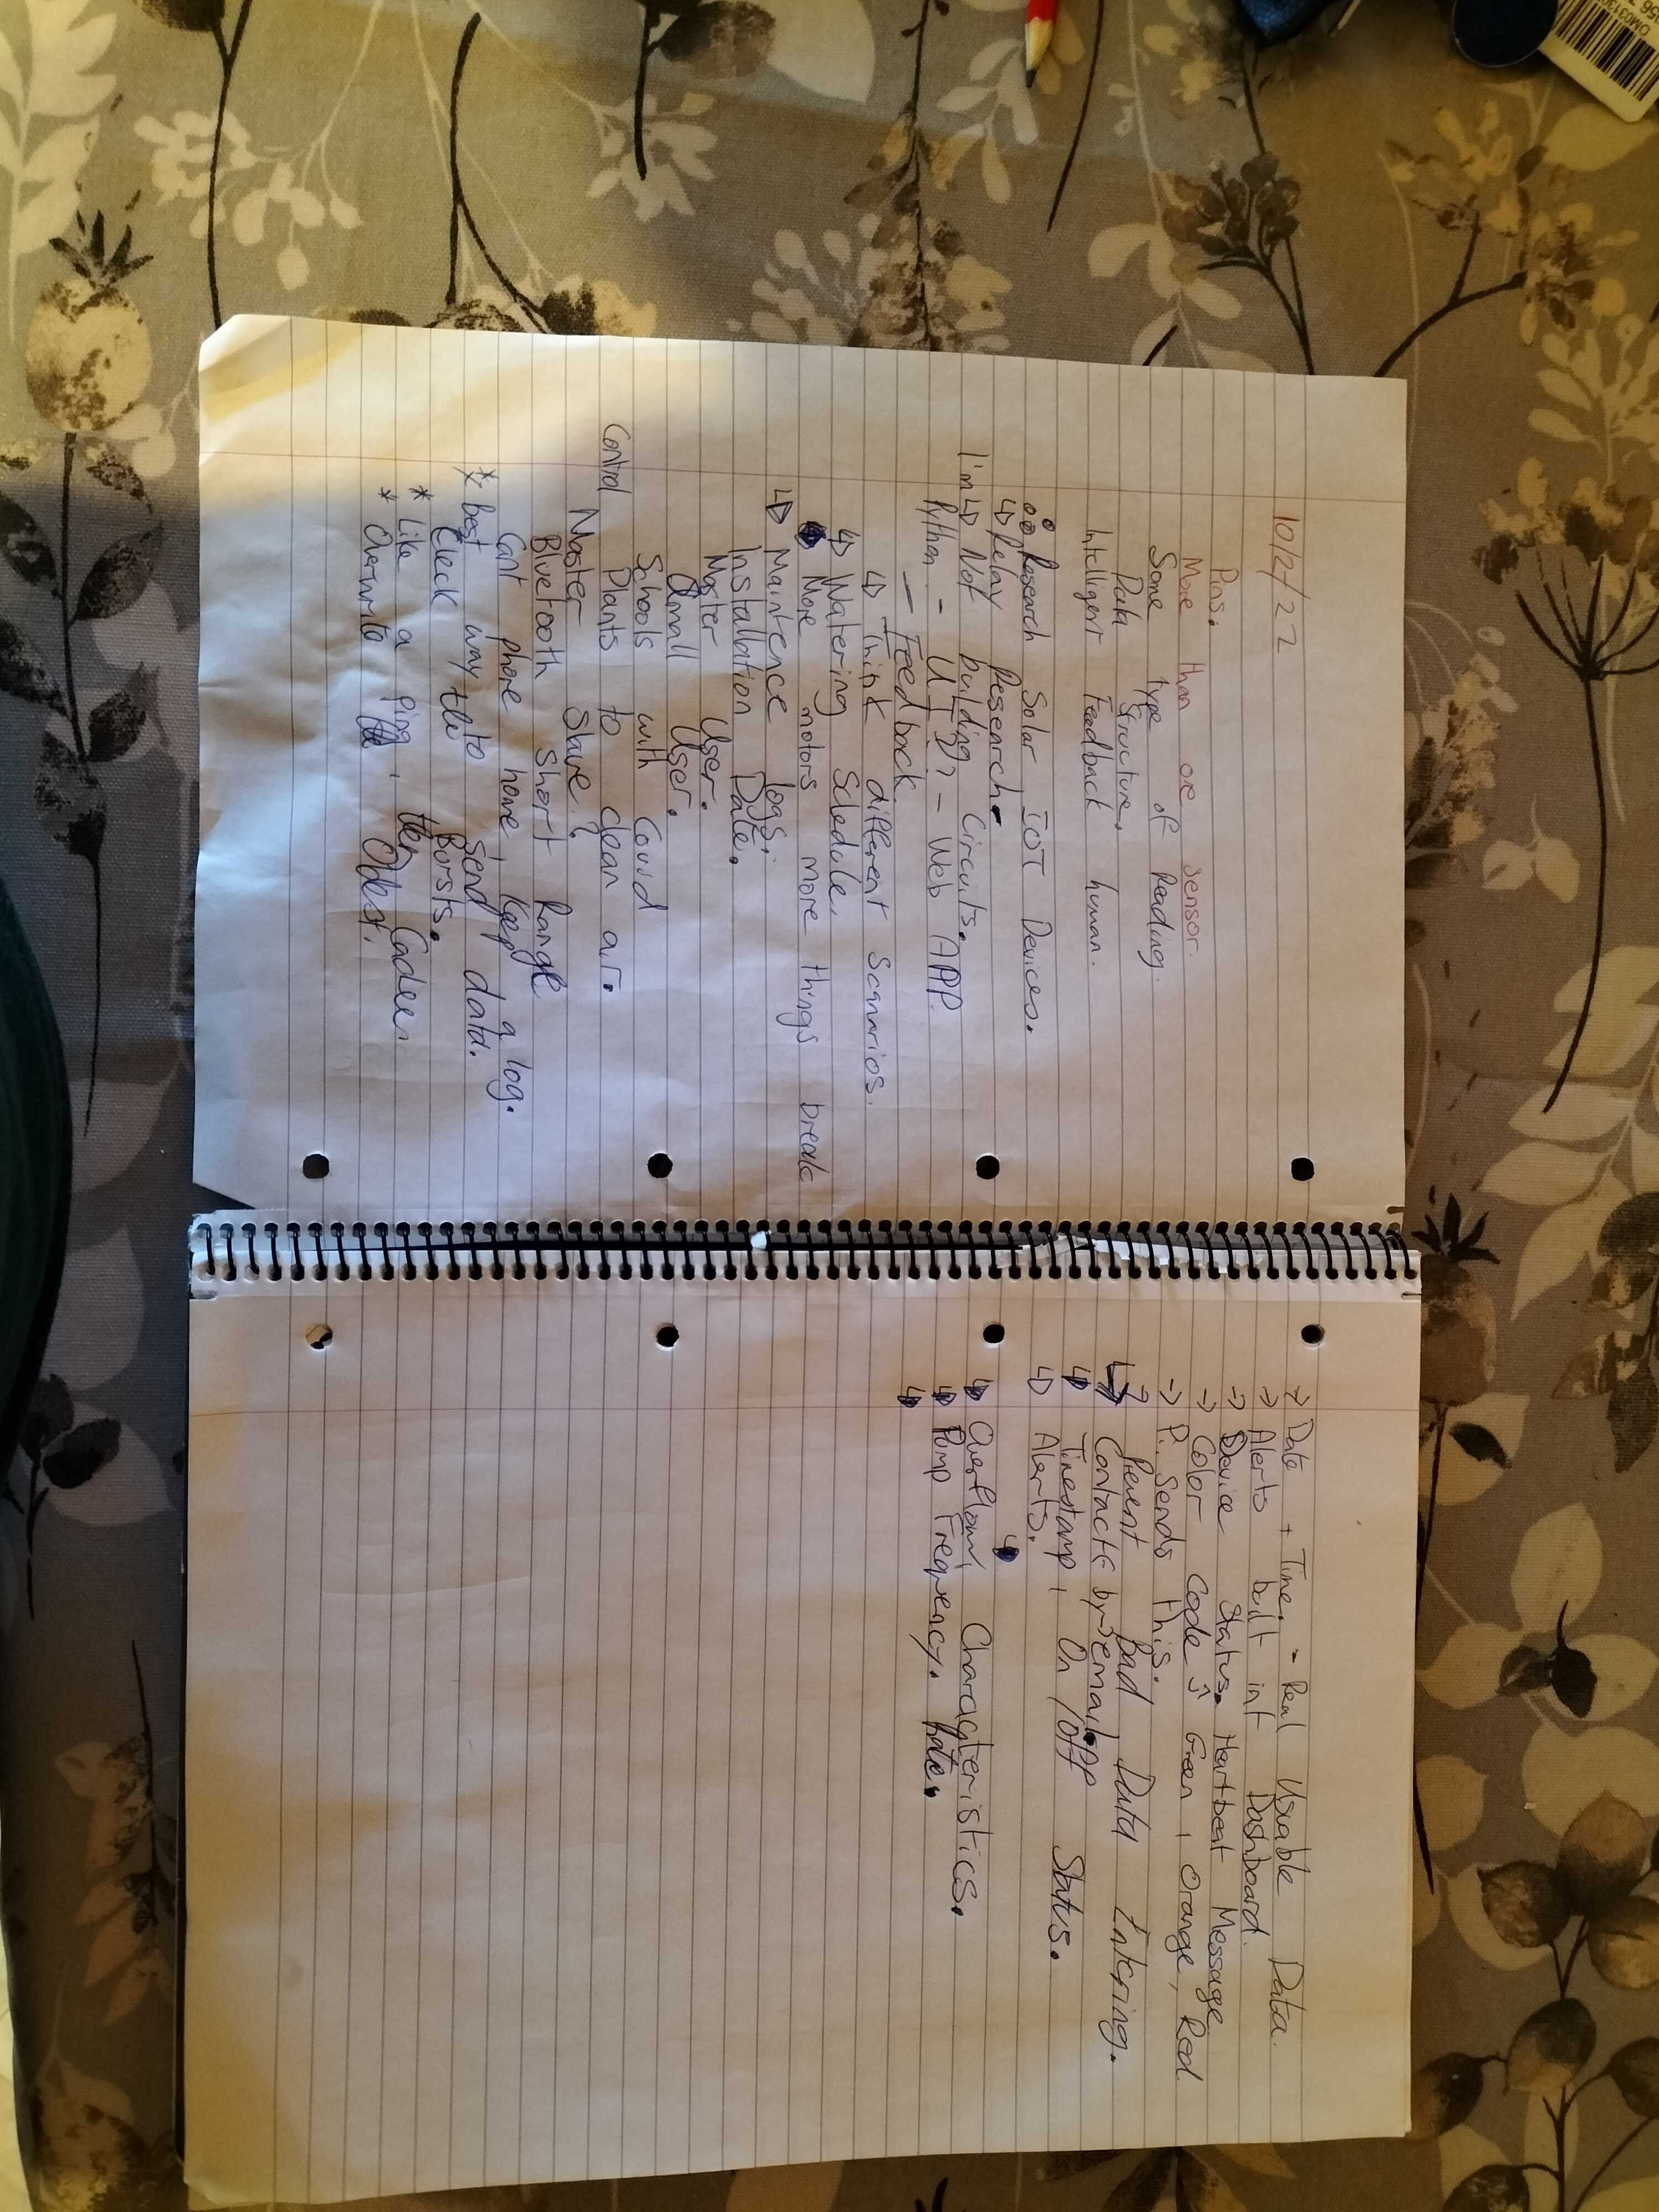 10/2/22
Pins.
More than one sensor.
Some type of Reading.
Data Structure.
Intelligent Feedback human.
Research Solar IOT Devices.
↳ Relay Research.
I'm ↳ Not building Circuits.
Python - UI? - Web APP.
— Feedback
↳ Think different Scanarios.
↳ Watering Schedule.
More motors more things break
↳ Maintence logs.
Installation Date.
Master User.
Small User.
Schools with Covid
Control Plants to clean air.
Master Slave?
Bluetooth Short Range
Cant phone home, keep a log.
* best way to send data.
Check the Bursts.
* Like a ping, then
* Overwrite Oldest.
→ Date + Time. - Real Usuable Data.
→ Alerts built int Dashboard.
→ Device Status. Heartbeat Message
→ Color Code Green, Orange, Red
→ Pi Sends this.
↳ Prevent Bad Data Entering.
↳ Contacts by email, app
↳ Timestamp, On/off Status.
↳ Alerts.
↳ Overflow Characteristics.
↳ Pump Frequency. Rate.